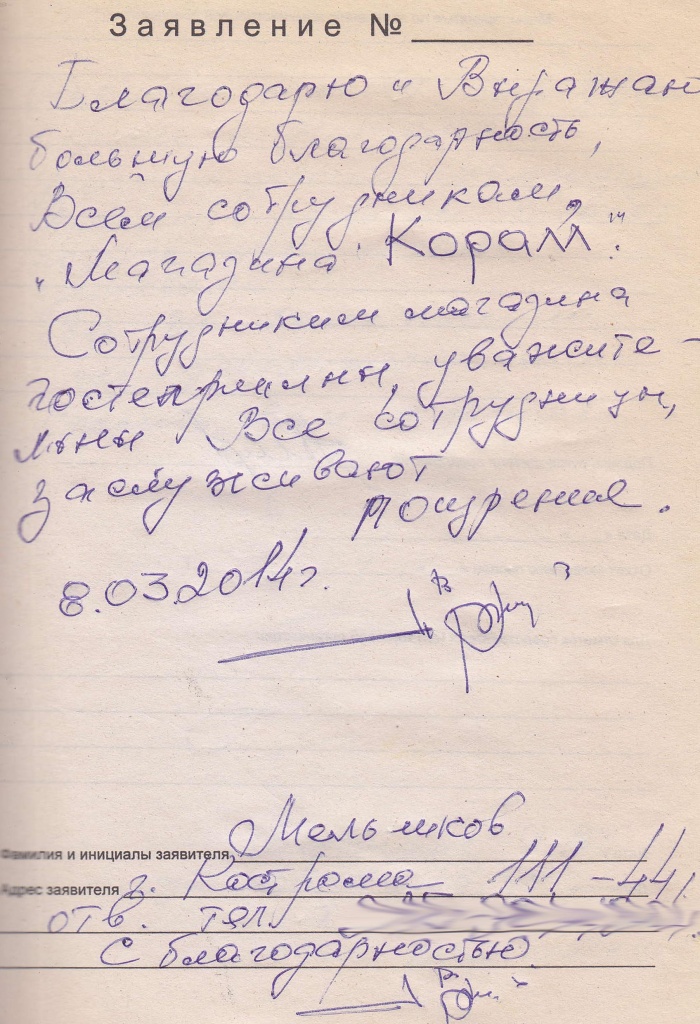 Заявление №
Благодарю и Выражаю
большую благодарность,
Всем сотрудникам,
"Магазина "Корал".
Сотрудники магазина
гостеприимны, уважите-
льны Все сотрудницы,
заслуживают
поощрения.
8.03.2014г.
Фамилия и инициалы заявителя Мельников
Адрес заявителя г. Кострома 111-44
отв. тел.
С благодарностью